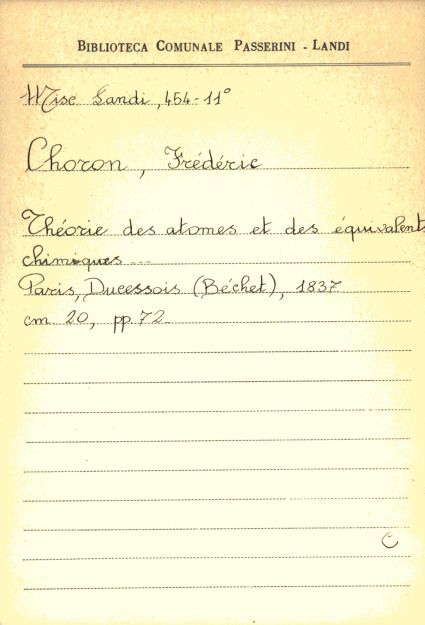 BIBLIOTECA COMUNALE PASSERINI - LANDI
Misc Landi, 454-11°
Choron, Frédéric
Théorie des atomes et des équivalents
chimiques ...
Paris, Ducessois (Béchet), 1837
cm. 20, pp. 72
C